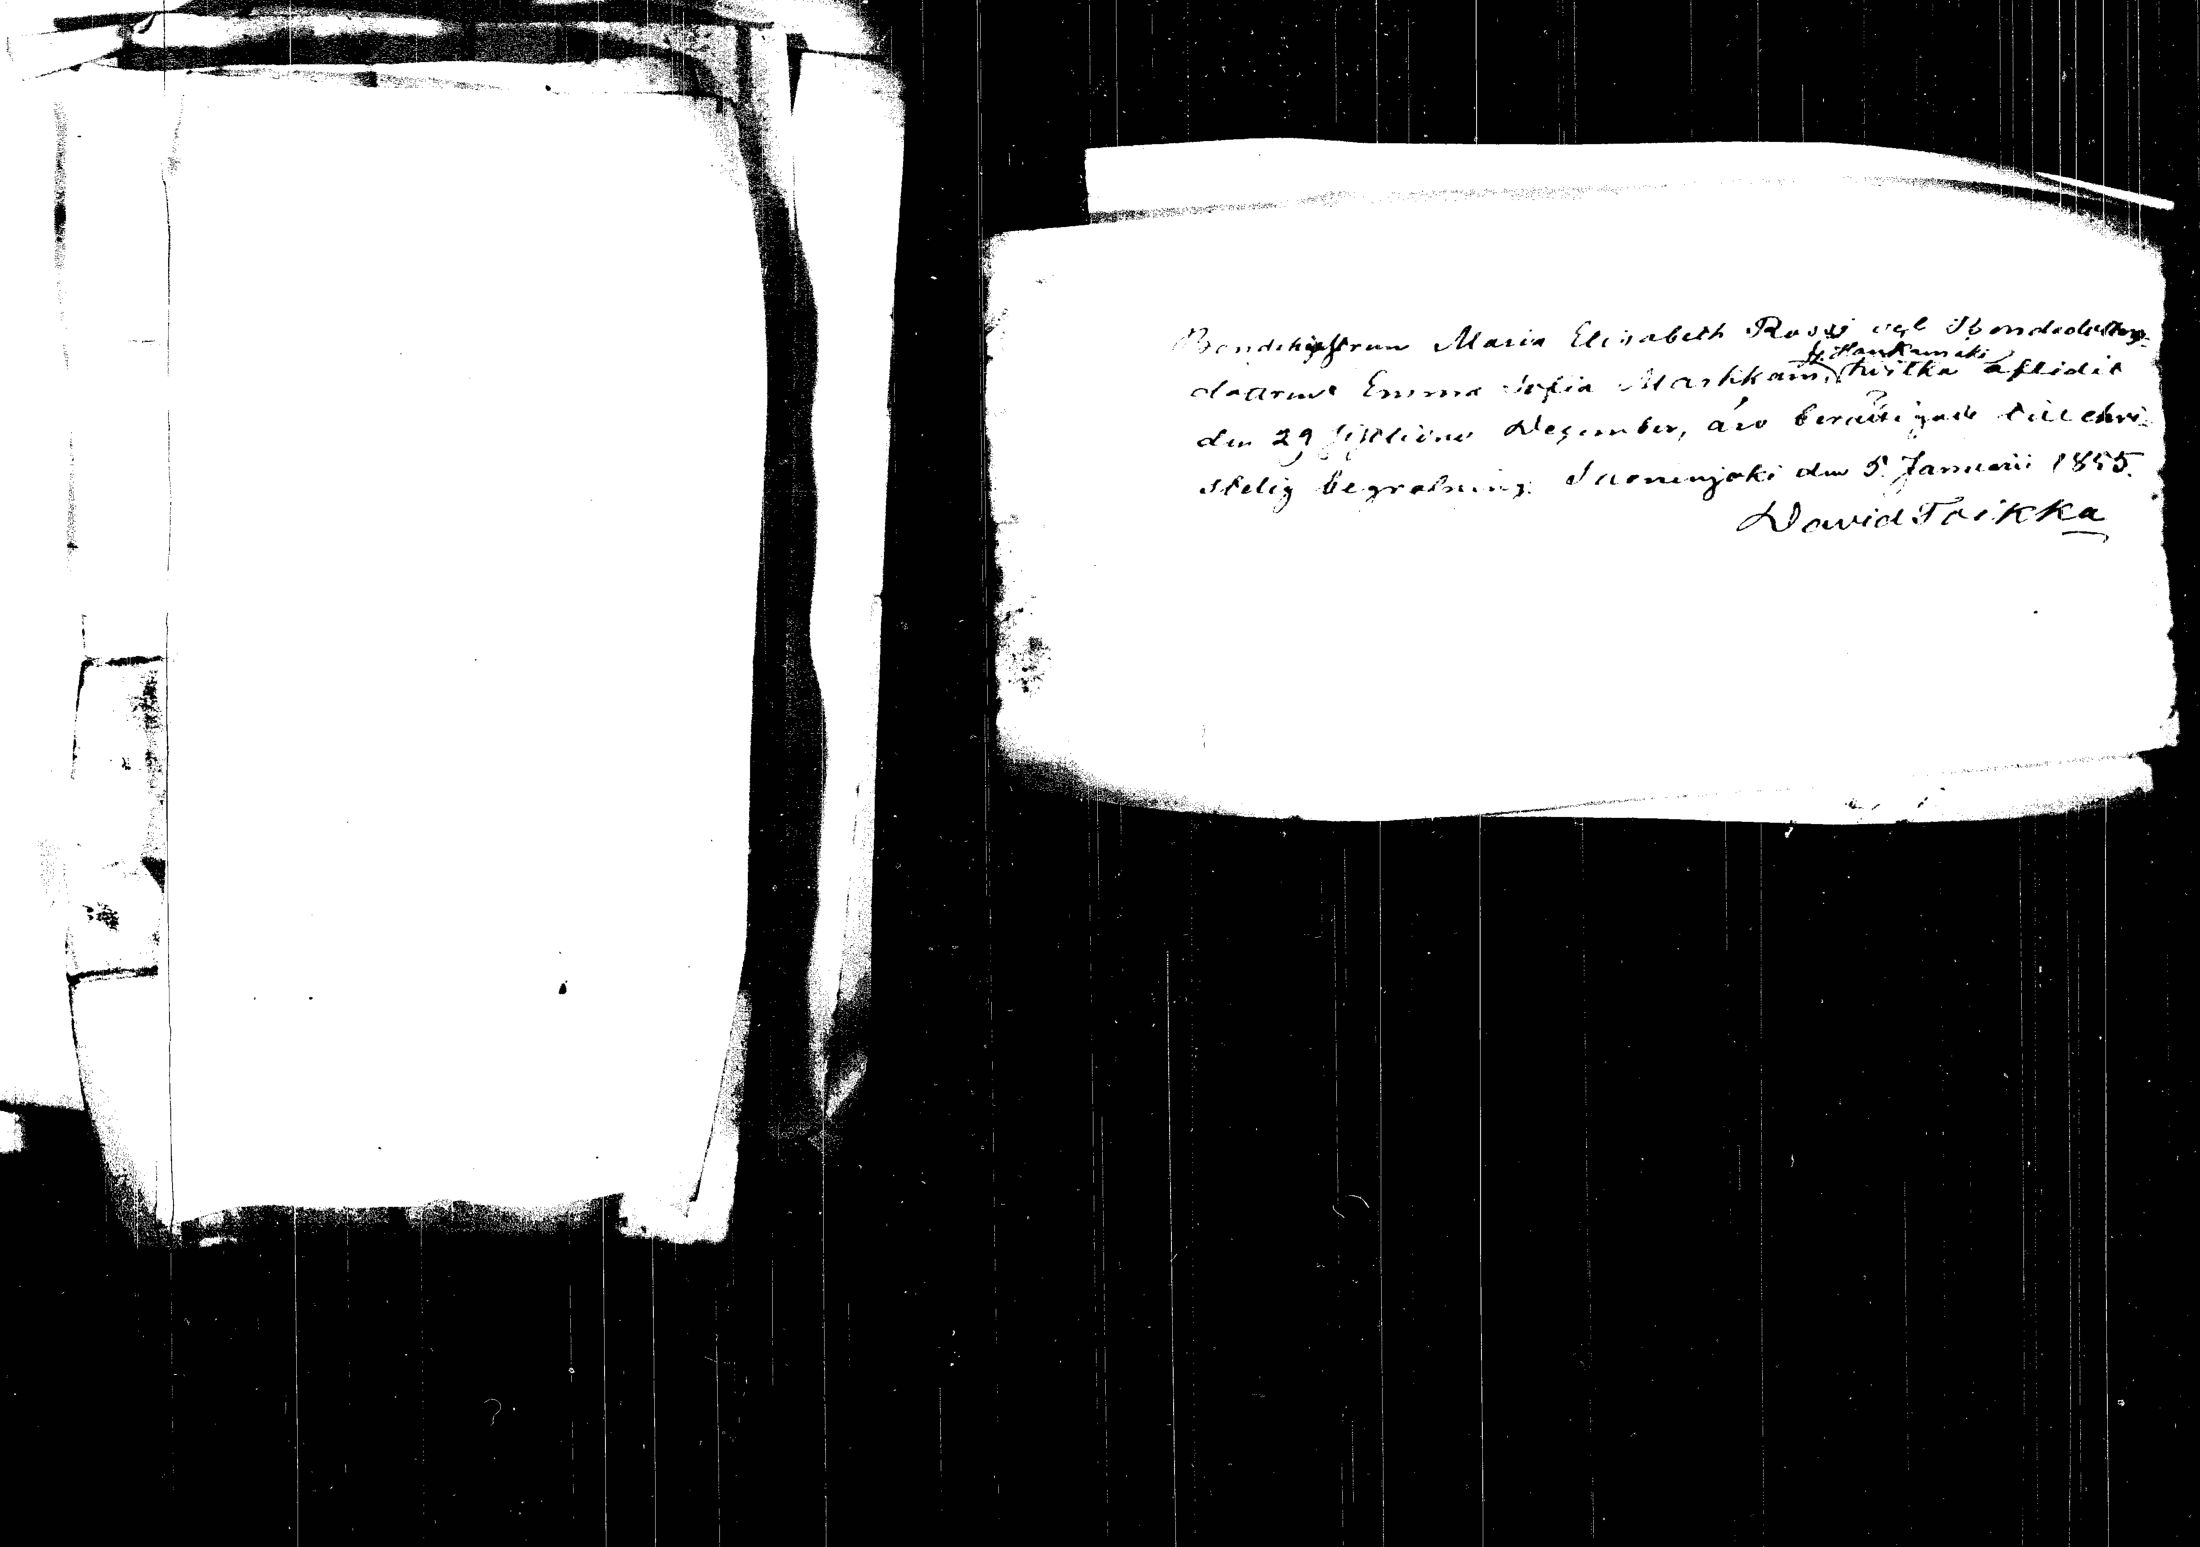 Bondehustrun Maria Elisabeth Rossi och Bondedotter-
dottren Emma Sofia
fr. Haukamäki
aflidit
den 29 sistlidne December, äro berättigade till chri-
stelig begrafning. Suonenjoki den 5 Januarii 1855.
David Toikka